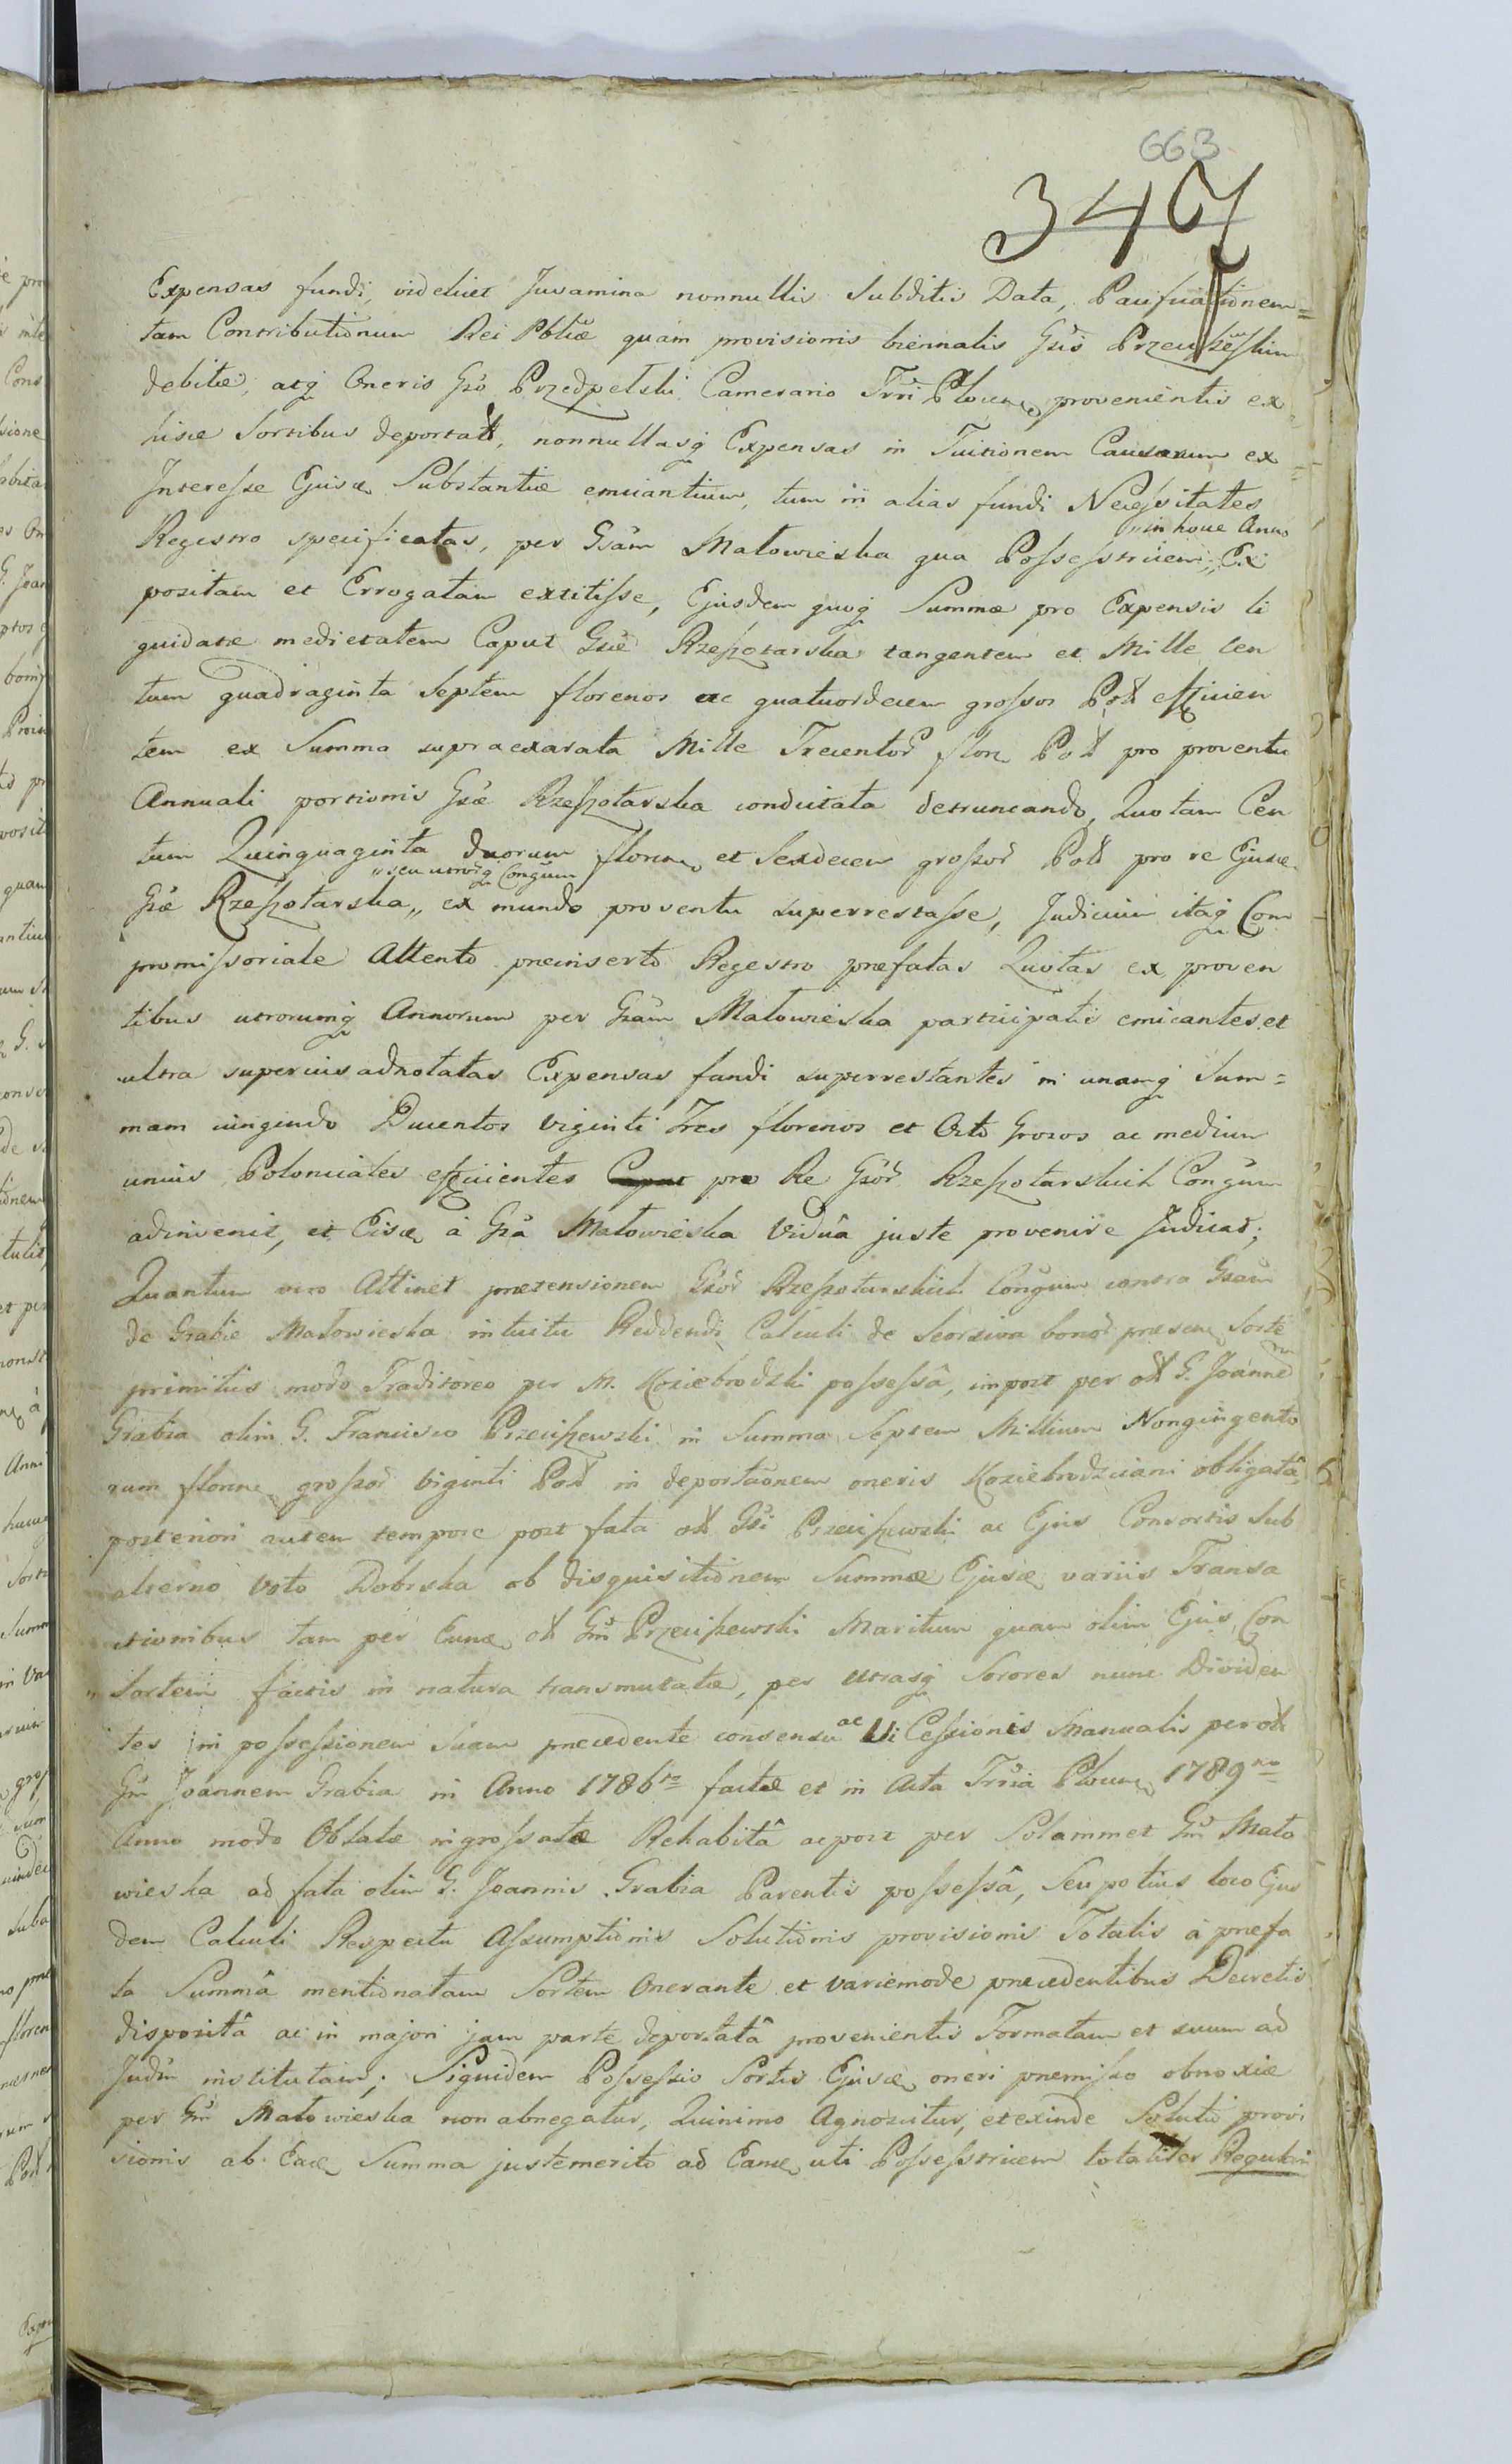 663
347
Expensas fundi, videlicet Juvamina nonnullis Subditis Data, Pacificationem=
tam Contributionum Rei Pblicæ quam provisionis biennalis Gsis Przeciszewskim
debitæ, atq Oneris Gso Przedpełski Camerario Trri Plocen provenientis ex
hisce Sortibus deportati, nonnullasq Expensas in Tuitionem Causarum ex
Interesse Ejusce Substantiæ emicantium, tum in alias fundi Necessitates
Regestro specificatas, per Gsam Małowieska qua Possestricem,, Ex
,,in hoce Anno
positam et Errogatam extitisse, Ejusdem quoq Summæ pro Expensis li
quidatæ medietatem Caput Gsæ Rzeszotarska tangentem et Mille Cen
tum quadraginta Septem florenos ac quatuordecem grossos Pol efficien
tem ex Summa supraexarata Mille Trecentor flore Pol pro proventu
Annuali portionis Gsæ Rzeszotarska condictata detruncando, Quotam Cen
tum Quinquaginta duorum floren et Sexdecem grossor Pol pro re Ejusce
,,seu utriusq Congum
Gsæ Rzeszotarska,, ex mundo proventu superrestasse, Judicium itaq Com
promissoriale Attento præinserto Regestro præfatas Quotas ex proven
tibus utrorumq Annorum per Gsam Małowieska participatis emicantes et
ultra superius adnotatas Expensas fundi superrestantes in unamq Sum=
mam cingendo Ducentos viginti Tres florenos et Octo Grosos ac medium
unius Polonicales efficientes Caput pro Re Gsor Rzeszotarskich Congum
adinvenit, et Eisce à Gsa Małowieska Viduâ juste provenire Judicat;
Quantum vero Attinet prætensionem Gsor Rzeszotarskich Congum contra Gsam
de Grabie Małowieska intuitu Reddendi Calculi de Seorsiva bonor præsen Sorte
primitus modo Traditoreo per M. Koziebrodzki possessâ, impost per ol G. Joannem
Grabia olim G. Francisco Przeciszewski in Summa Septem Millium Nongingento
rum floren grossor Viginti Pol in deportationem oneris Koziebrodzciani obligatâ,
posteriori autem tempore post fata ol Gsi Przeciszewski ac Ejus Consortis sub
alterno voto Dobrska ob disquisitionem Summæ Ejusce variis Transa
ctionibus tam per Eunce ol Gm Przeciszewski Maritum quam olim Ejus Con
sortem factis in natura transmutatæ, per utrasq Sorores nunc Dividen
tes in possessionem suam præcedente consensu ac Vi Cessionis Manualis per ol
Gm Joannem Grabia in Anno 1786to factæ et in Acta Trria Plocen 1789no
Anno modo Oblatæ ingrossatæ Rehabitâ ac post per Solammet Gm Mało
wieska ad fata olim G. Joannis Grabia Parentis possessâ, Seu potius loco Ejus
dem Calculi Respectu Assumptionis Solutionis provisionis Totalis à præfa
ta Summâ mentionatam Sortem Onerante et variemode præcedentibus Decretis
dispositâ ac in majori jam parte deportatâ provenientis Formatam et suum ad
Judm institutam; Siquidem Possessio Sortis Ejusce oneri præmisso obnoxiæ
per Gm Małowieska non abnegatur, Quinimo Agnoscitur, et exinde Solutio provi
sionis ab Eace Summa juste merito ad Eamce uti Possestricem totaliter Regulari